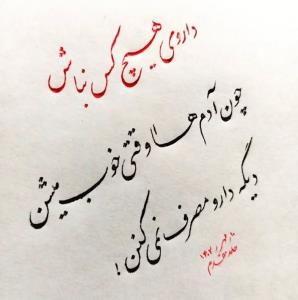 داروی هیچ کس نباش
چون آدم ها وقتی خوب میشن
دیگه دارو مصرف نمی کنن!